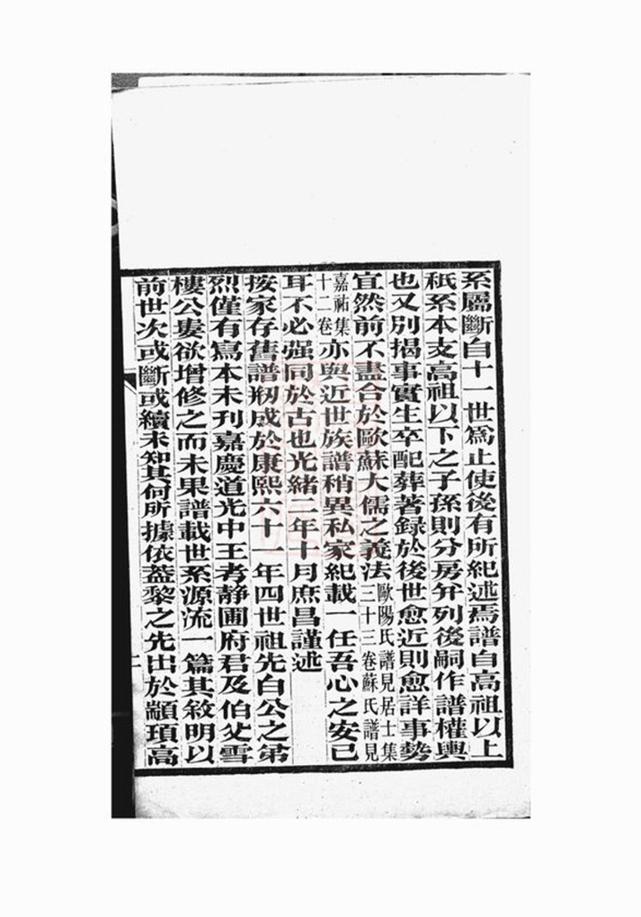 系屬斷自十一世爲止使後有所紀述焉譜自高祖以上
秖系本支高祖以下之子孫則分房弁列後嗣作譜權輿
也又別揭事實生卒配葬著録於後世愈近則愈詳事勢
宜然前不盡合於歐蘇大儒之義法歐陽氏譜見居士集三十三卷蘇氏譜見
嘉祐集十二卷亦與近世族譜稍異私家紀載一任吾心之安已
耳不必强同於古也光緒二年十月庶昌謹述
按家存舊譜剏成於康熙六十一年四世祖先白公之弟
烈僅有寫本未刊嘉慶道光中王考静圃府君及伯父雪
樓公叏欲增修之而未果譜載世系源流一篇其敘明以
前世次或斷或續未知其何所據依葢黎之先出於顓頊高